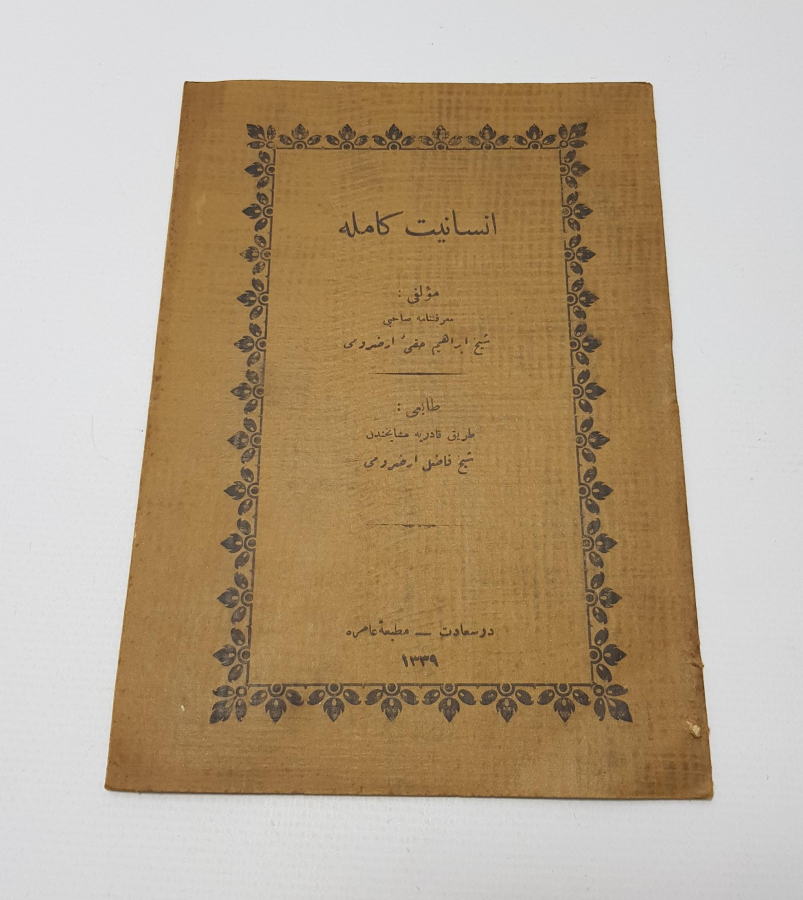 انسانيت كامله
مؤلفى :
معرفتنامه صاحبى
شيخ ابراهيم حقىء ارضرومى
طابعى :
طريق قادريه مشايخندن
شيخ فاضل ارضرومى
درسعادت — مطبعهٔ عامره
١٣٣٩